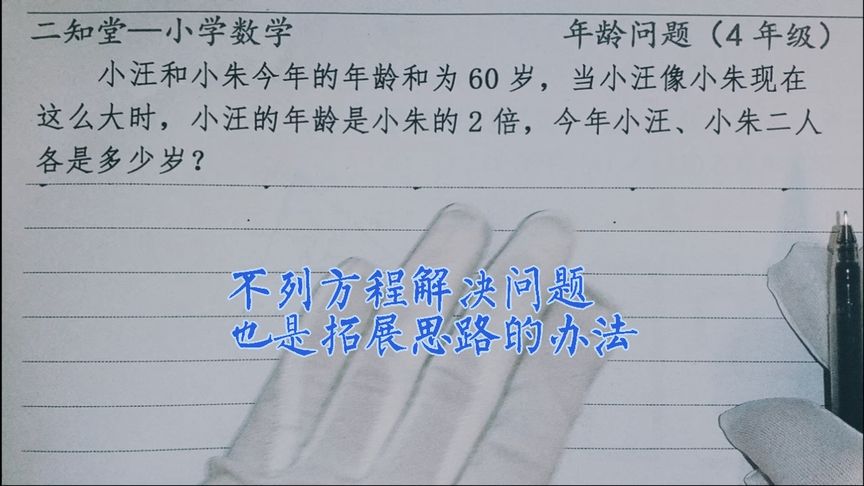 二知堂—小学数学 年龄问题（4 年级）
小汪和小朱今年的年龄和为 60 岁，当小汪像小朱现在
这么大时，小汪的年龄是小朱的 2 倍，今年小汪、小朱二人
各是多少岁？
不列方程解决问题
也是拓展思路的办法